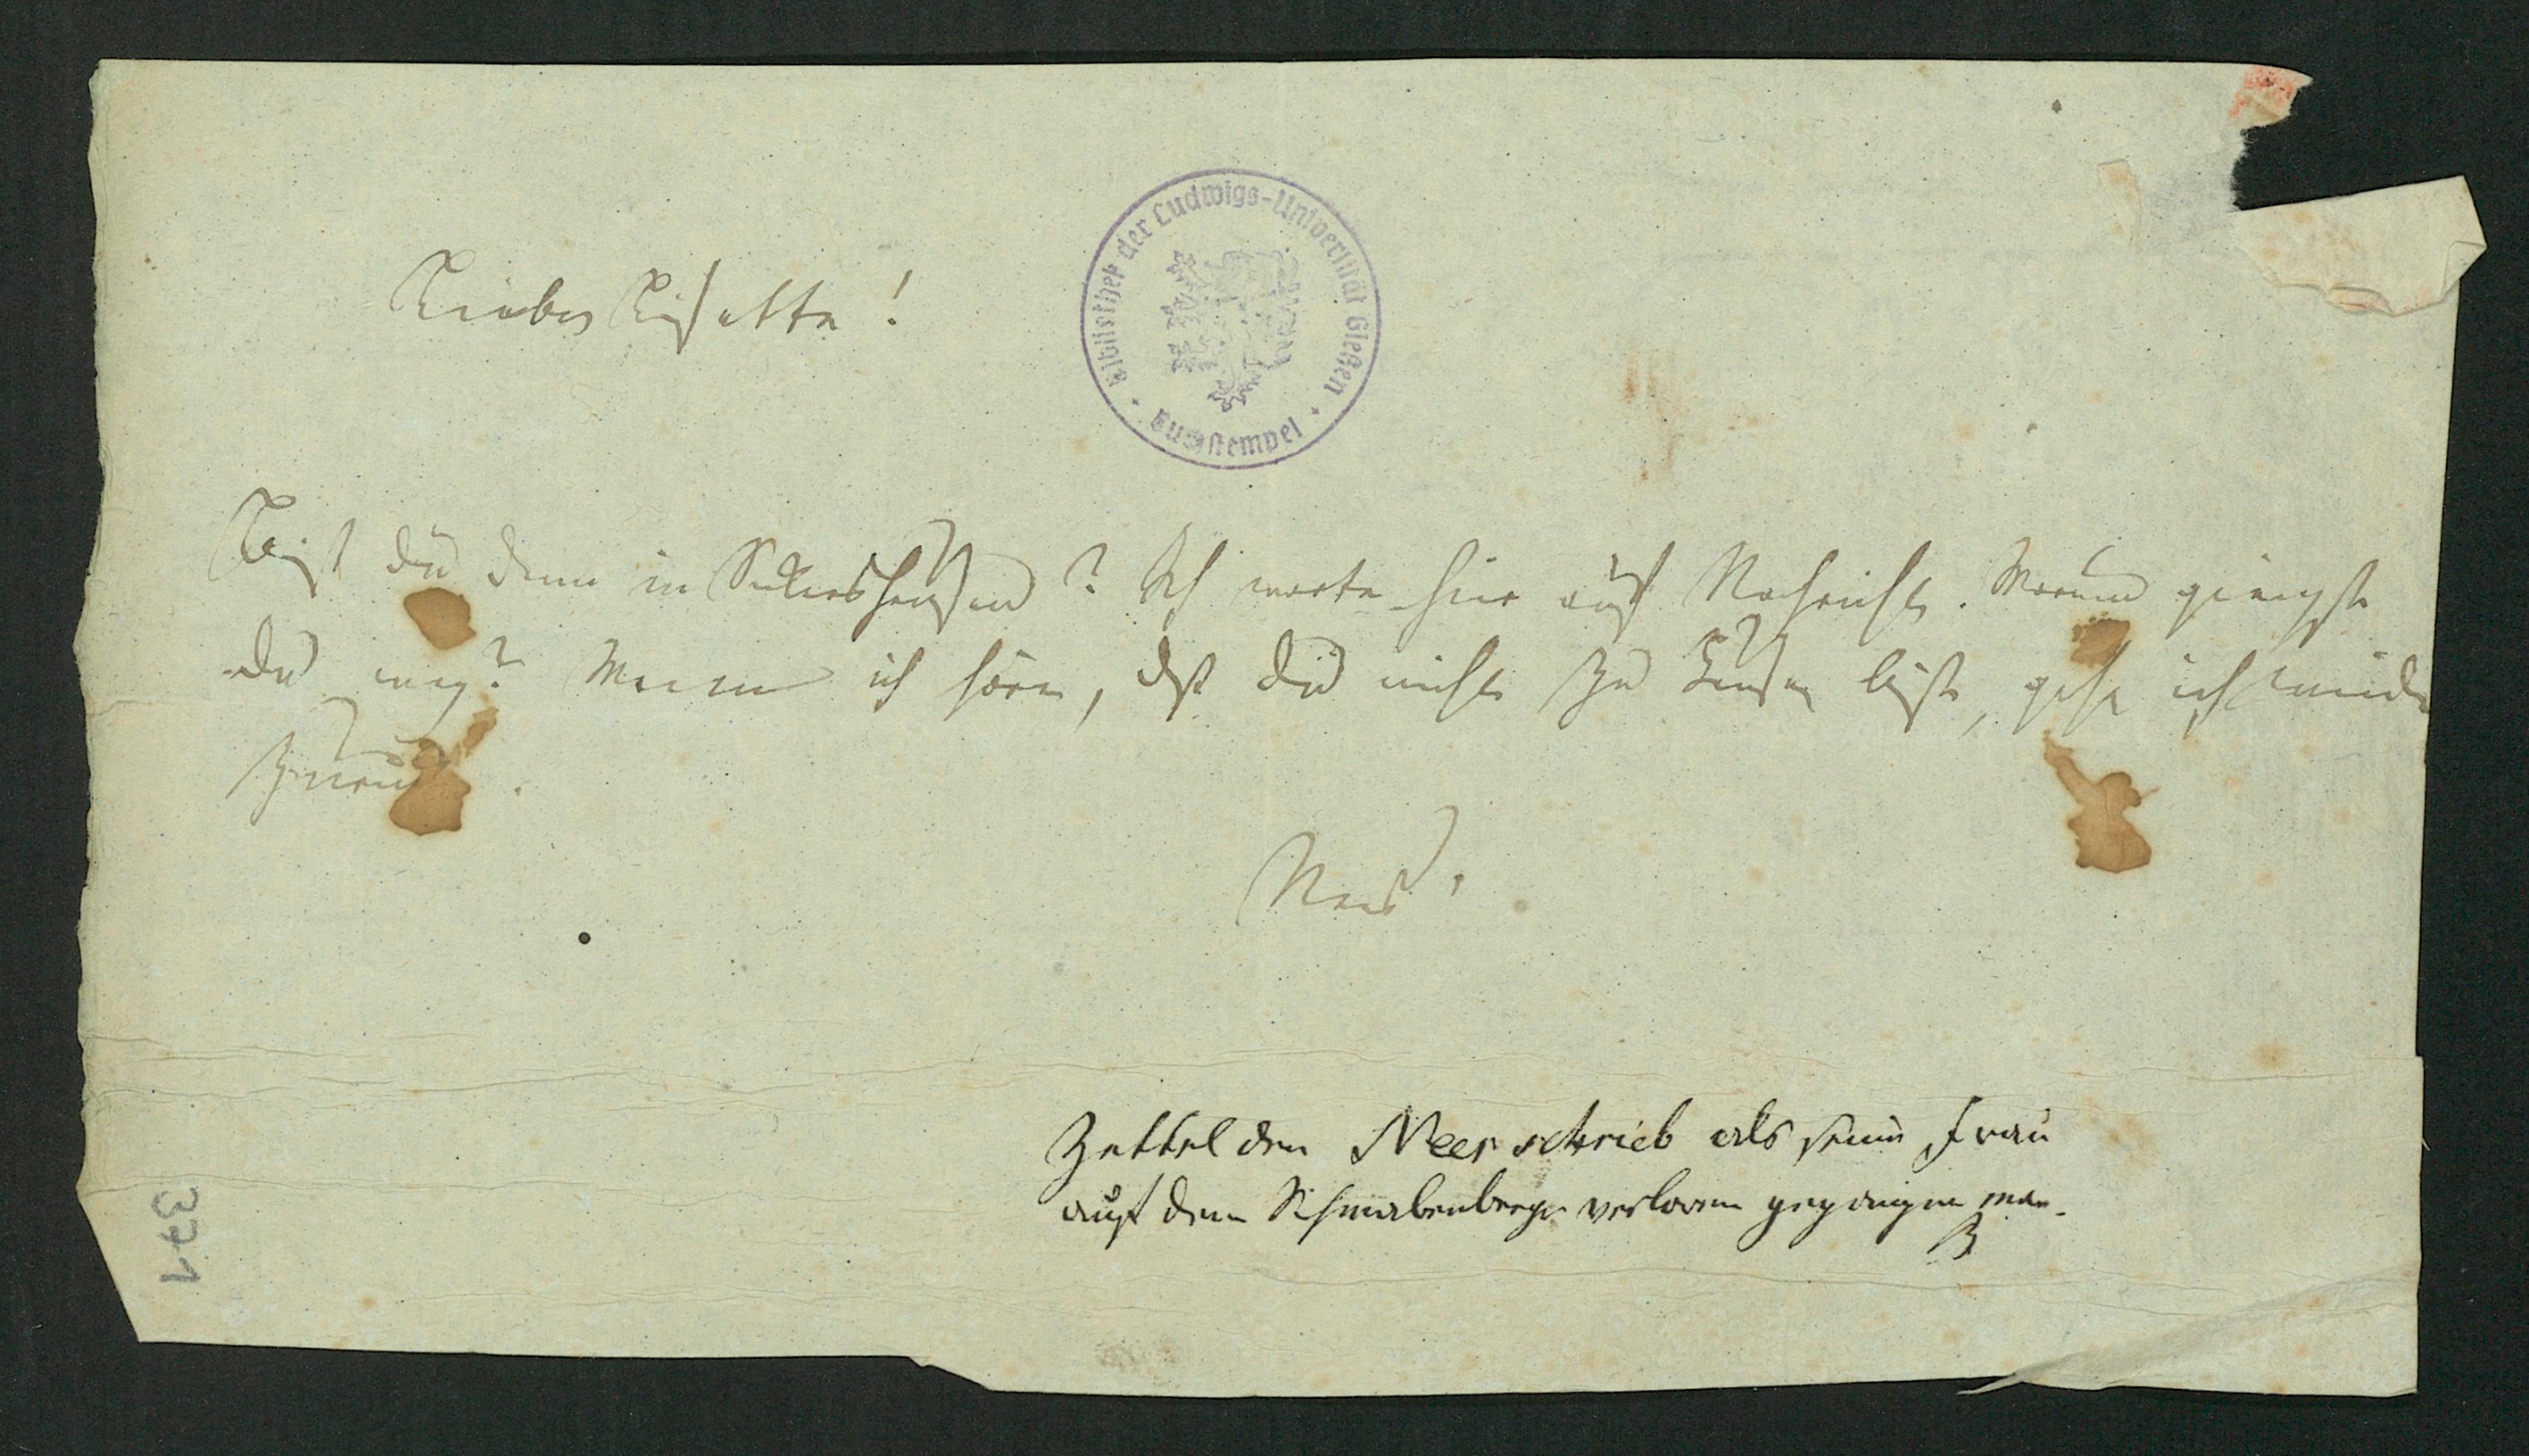 Bibliothek der Ludwigs-Universität Gießen
Buchstempel
Liebes Lisette!
Bist du denn in Sickershausen? Ich warte hier auf Nachricht. Warum giengst
du weg? Wenn ich höre, daß du nicht zu Hause bist, gehe ich wieder
zurück.
Nees.
Zettel den Nees schrieb als seine Frau
auf dem Schwabenberge verloren gegangen war.